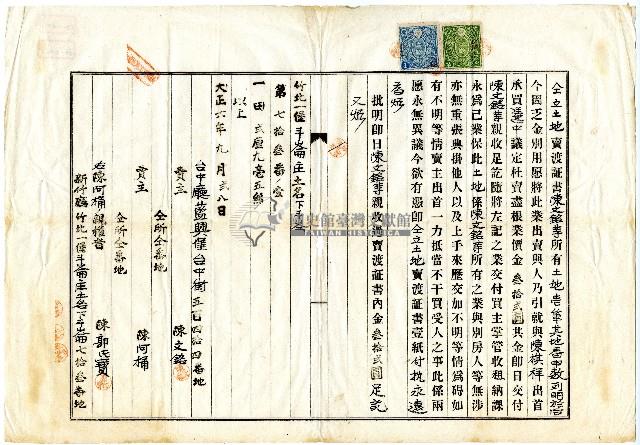 仝立土地賣渡証書陳文鎔等所有土地壹筆其地番甲數列明於后
今因乏金別用愿將此業出賣與人乃引就與陳模祥出首
承買逢中議定杜賣盡根業價金叁拾貳圓其金即日交付
陳文鎔等親收足訖隨將左記之業交付買主掌管收租納課
永為己業保此土地係陳文鎔等所有之業與別房人等無涉
亦無重張典掛他人以及上手來歷交加不明等情為碍如
有不明等情賣主出首一力抵當不干買受人之事此係兩
愿永無異議今欲有憑即仝立土地賣渡証書壹紙付执永遠
為炤
批明即日陳文鎔等親收過賣渡証書內金叁拾貳圓足訖
又炤
竹北一堡斗崙庄土名下斗崙
第七拾叁番
一田貳厘九毫五絲
以上
大正六年九月貳八日
台中廳藍興堡台中街五百四拾四番地
賣主 陳文鎔
仝所仝番地
賣主 陳阿桶
仝所仝番地
右陳阿桶親權者 陳郭氏寶
新竹廳竹北一堡斗崙庄土名下斗崙七拾叁番地
國史館臺灣文獻館
TAIWAN HISTORICA